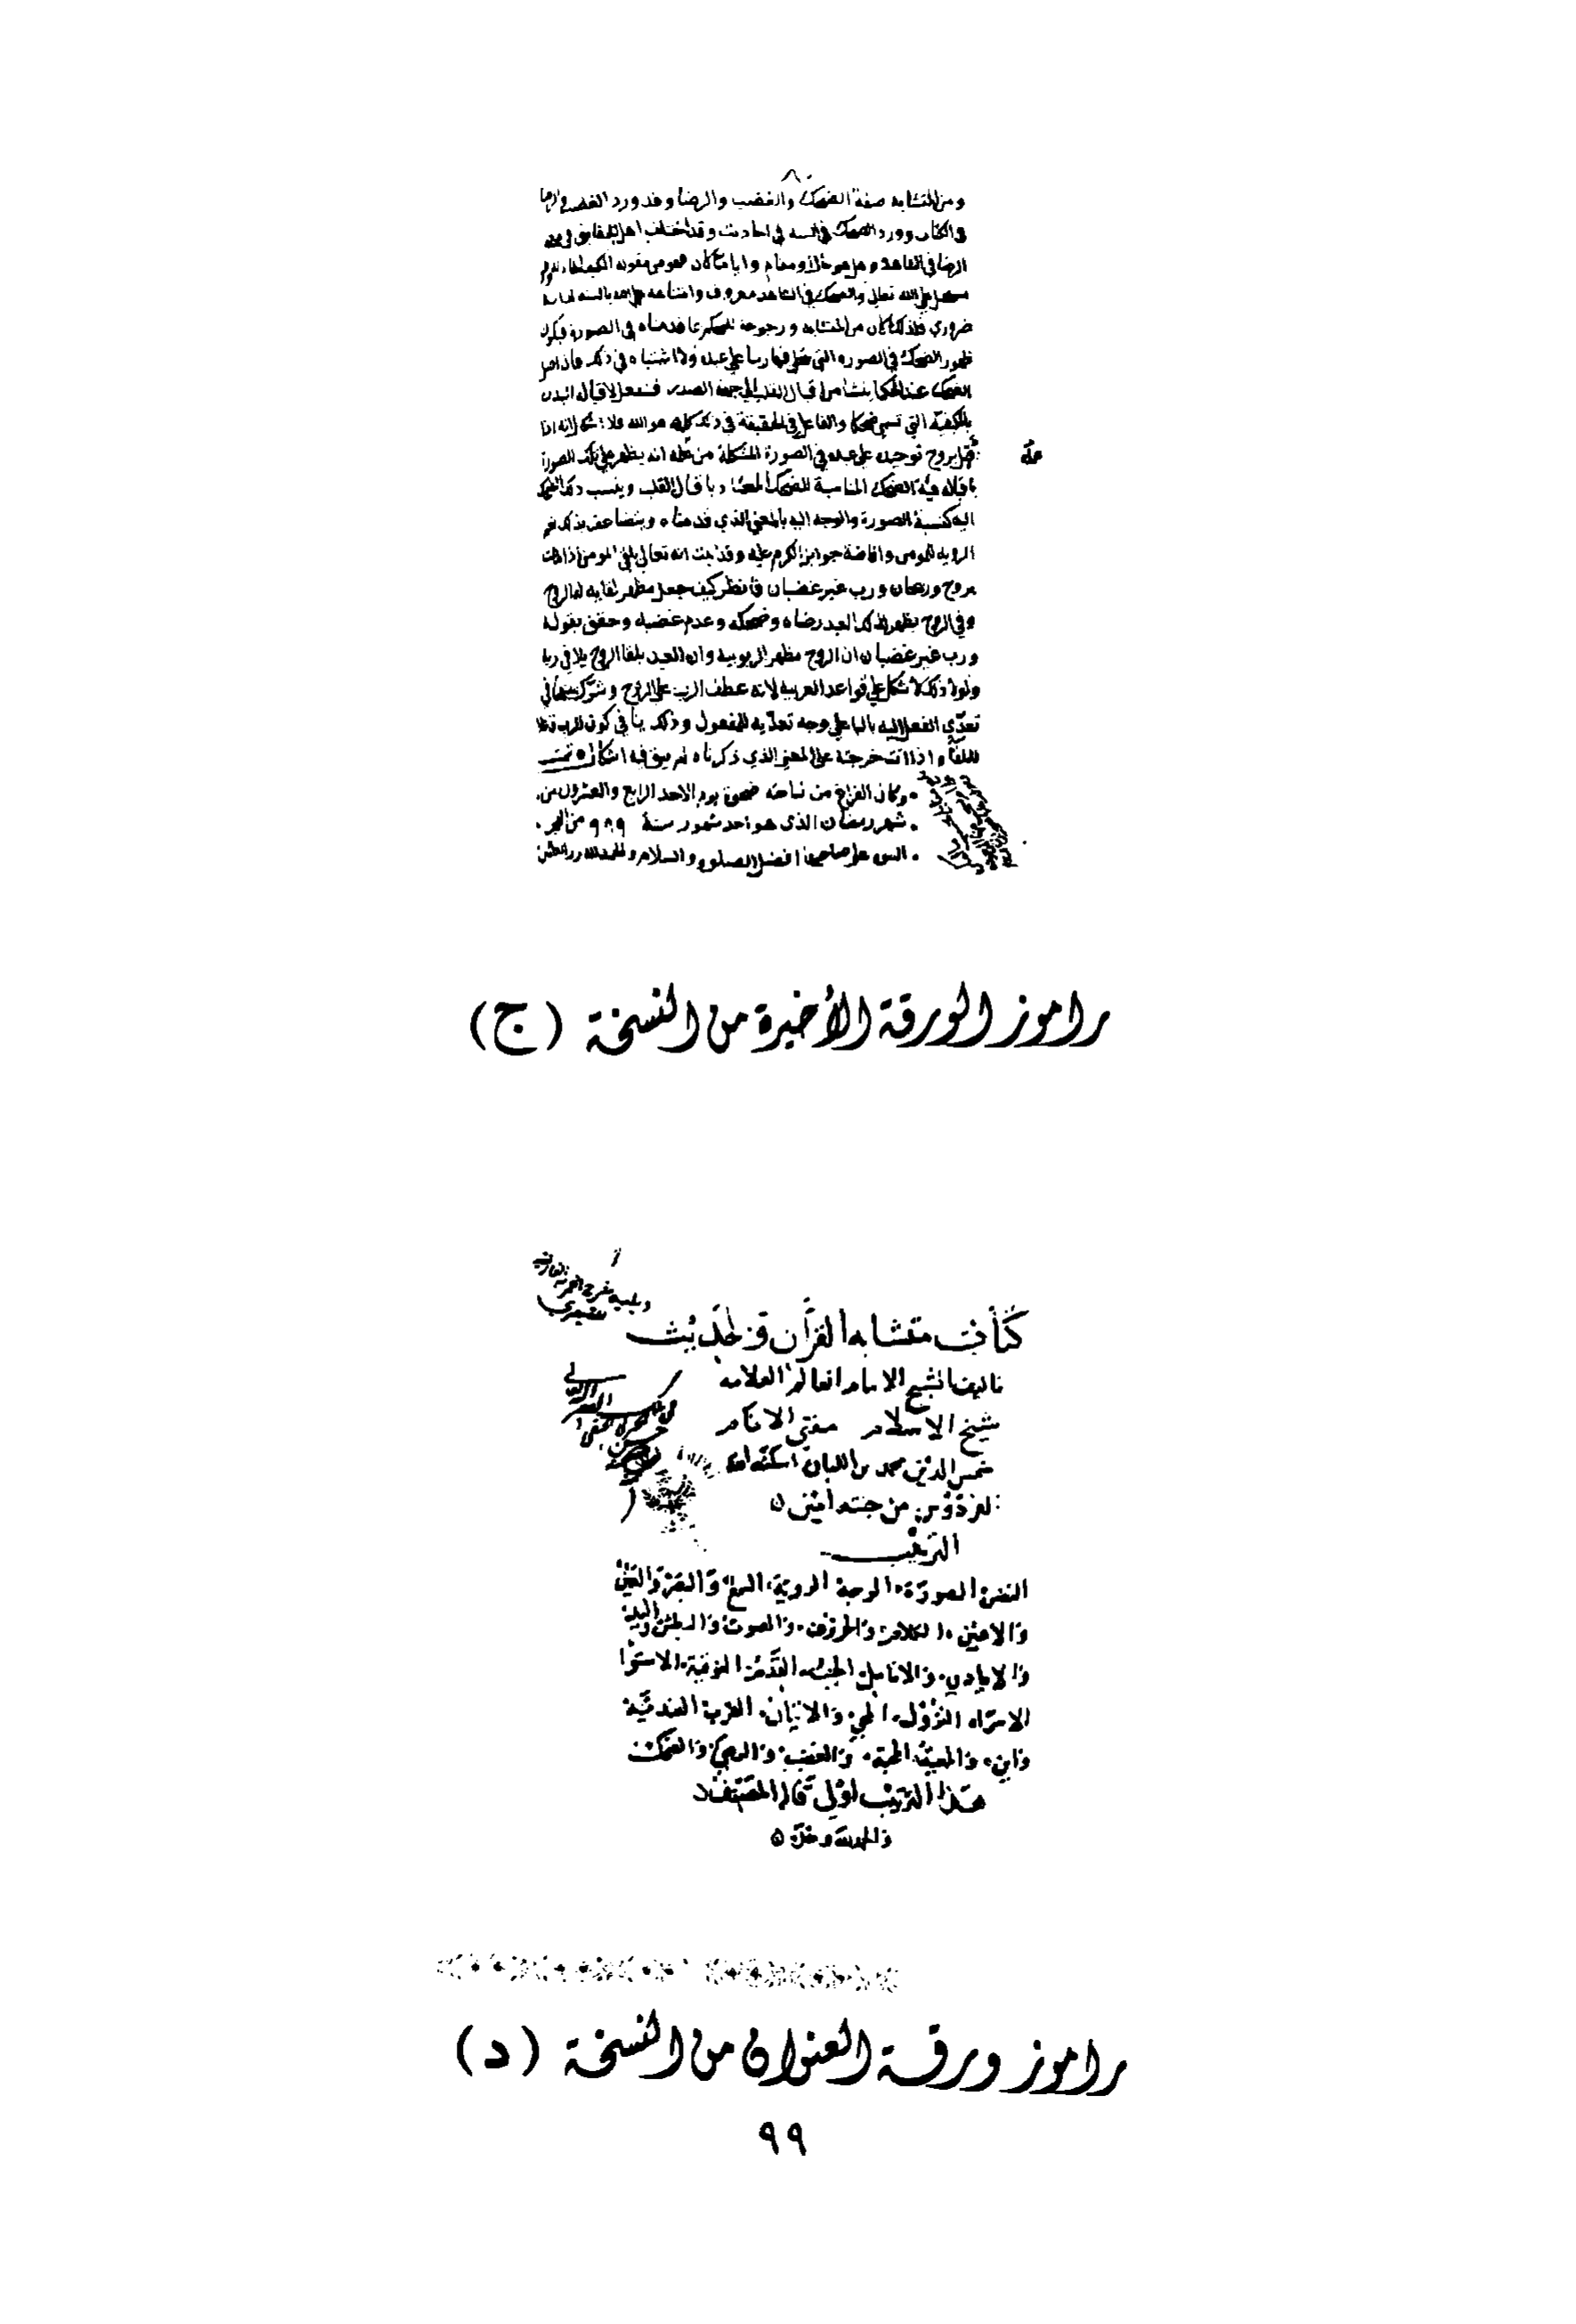 ومن المتشابه صفة الضحك والغضب والرضا وقد ورد الغضب والرضا
في الكتاب وورد الضحك في السنه في احاديث وقد اختلف اهل الحقايق في
الرضا في الشاهد وهل هو حال او مقام وايا ما كان فهو من مقوله الكيف
مستحيل على الله تعالى والضحك في الشاهد معروف وامتناعه
ضروري فلذلك كان من المتشابه ورجوعه للمحكم بما قدمناه في الصورة فيكون
ظهور الضحك في الصوره التي تجلى فيها ربنا على عبده ولا اشتباه في ذلك فان اصل
الضحك عند الحكما ينشا من اقبال القلب الى جهة الصدر فينفعل لاقباله البدن
بالكيفية التي تسمى ضحكا والفاعل في الحقيقة في ذلك كله هو الله فلا اشكال انه اذا
اقبل بروح توحيده على عبده في الصورة المشكلة من عمله انه يظهر على تلك الصورة
عمله
باقباله هيئة الضحك المناسبة للضحك المعتاد باقبال القلب وينسب ذلك الضحك
اليه كنسبة الصورة والوجه اليه بالمعنى الذي قدمناه ويتضاعف بذلك نعيم
الرويه للمومن وافاضة جوايز الكرم عليه وقد ثبت انه تعالى يلقى المومن اذا مات
بروح وريحان ورب غير غضبان فانظر كيف جعل مظهر لقايه لقا الروح
وفي الروح يظهر لذلك العبد رضاه وضحكه وعدم غضبه وحقق بقوله
ورب غير غضبان ان الروح مظهر الربوبيه وان العبد بلقا الروح يلاقي ربا
ولولا ذلك لاشكل على قواعد العربيه لانه عطف الرب على الروح وشرك بينهما في
تعدي الفعل اليه بالبا على وجه تعديه للمفعول وذلك ينافي كون الرب فاعلا
للقا واذا انت خرجته على المعنى الذي ذكرناه لم يبق فيه اشكال ٥ تمت
وكان الفراغ من نساخته ضحوة يوم الاحد الرابع والعشرون من
شهر رمضان الذي هو احد شهور سنة ٩٨٩ من الهجره
على صاحبها افضل الصلوه والسلام والحمد لله رب العالمين
راموز الورقة الأخيرة من النسخة (ج)
كتاب متشابه القرآن والحديث
تاليف الشيخ الامام العالم العلامة
شيخ الاسلام مفتي الانام
شمس الدين محمد بن اللبان اسكنه الله
الفردوس من جنته امين ٥
الترتيب
النفس الصورة الوجه الروية السمع والبصر والعين
والاعين الكلام والحرف والصوت واليد
والايادي والانامل الجنب القدم الفوقية الاستوا
الاسراء النزول المجي والاتيان القرب العندية
واين والمعية المحبة والغضب والرضى والضحك
هذا الترتيب اولى قاله المصنف
والحمد لله وحده ٥
راموز ورقة العنوان من النسخة (د)
٩٩